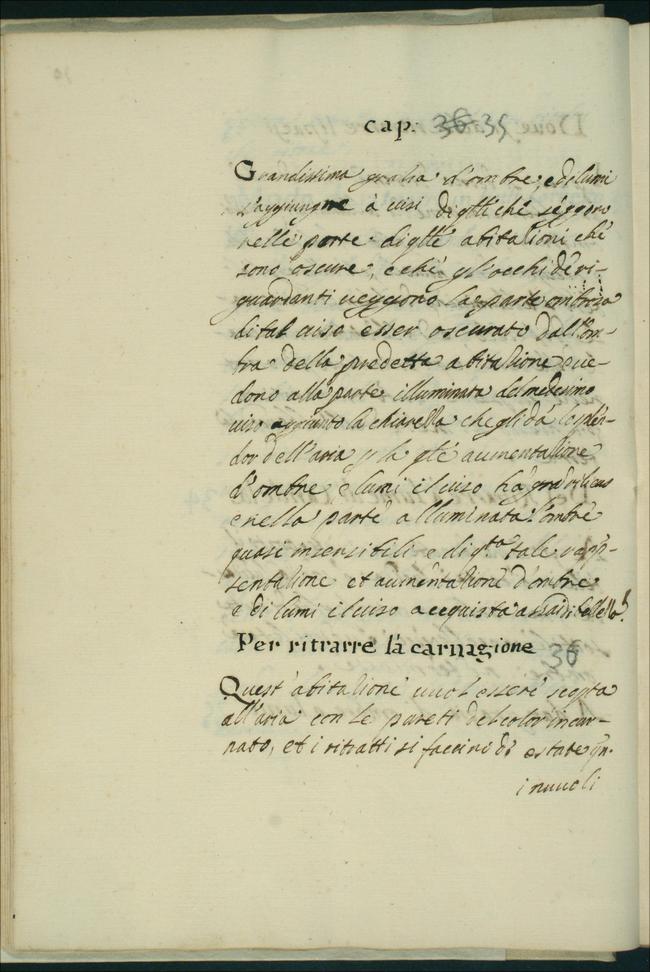 cap. 36 35
Grandissima gratia d'ombre, e di lumi
s'aggiungne à visi di q̃lli chè séggono
nellè porte di q̃llè abitationi chè
sono oscure, e chè gl'occhi dè ri-
guardanti veggono la parte ombrosa
di tal viso esser oscurato dall'om-
bra della predetta abitatione e ve-
dono alla parte illuminata del medesimo
viso aggiunto la chiarezza che gli dà lo splẽ-
dor dell'aria
d'ombre e lumi il viso hà gra rilievo
e nella partè alluminata l'ombrè
quasi insensibili e di q.ta tale rapp̃-
sentatione et aumentationè d'ombre
e di lumi il viso acquista assai di bellezza.
Per ritrarre là carnagione 36
Quest'abitationè vuol esserè scopta
all'aria con le pareti del color incar-
nato, et i ritratti si faccino di estate q̃n.
i nuvoli